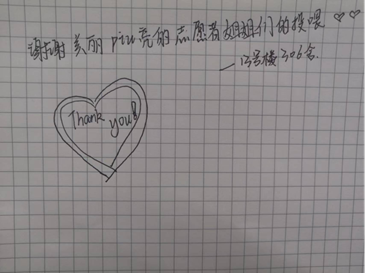 谢谢美丽piu亮的志愿者姐姐们的投喂♡♡
—13号楼306舍.
Thank you!